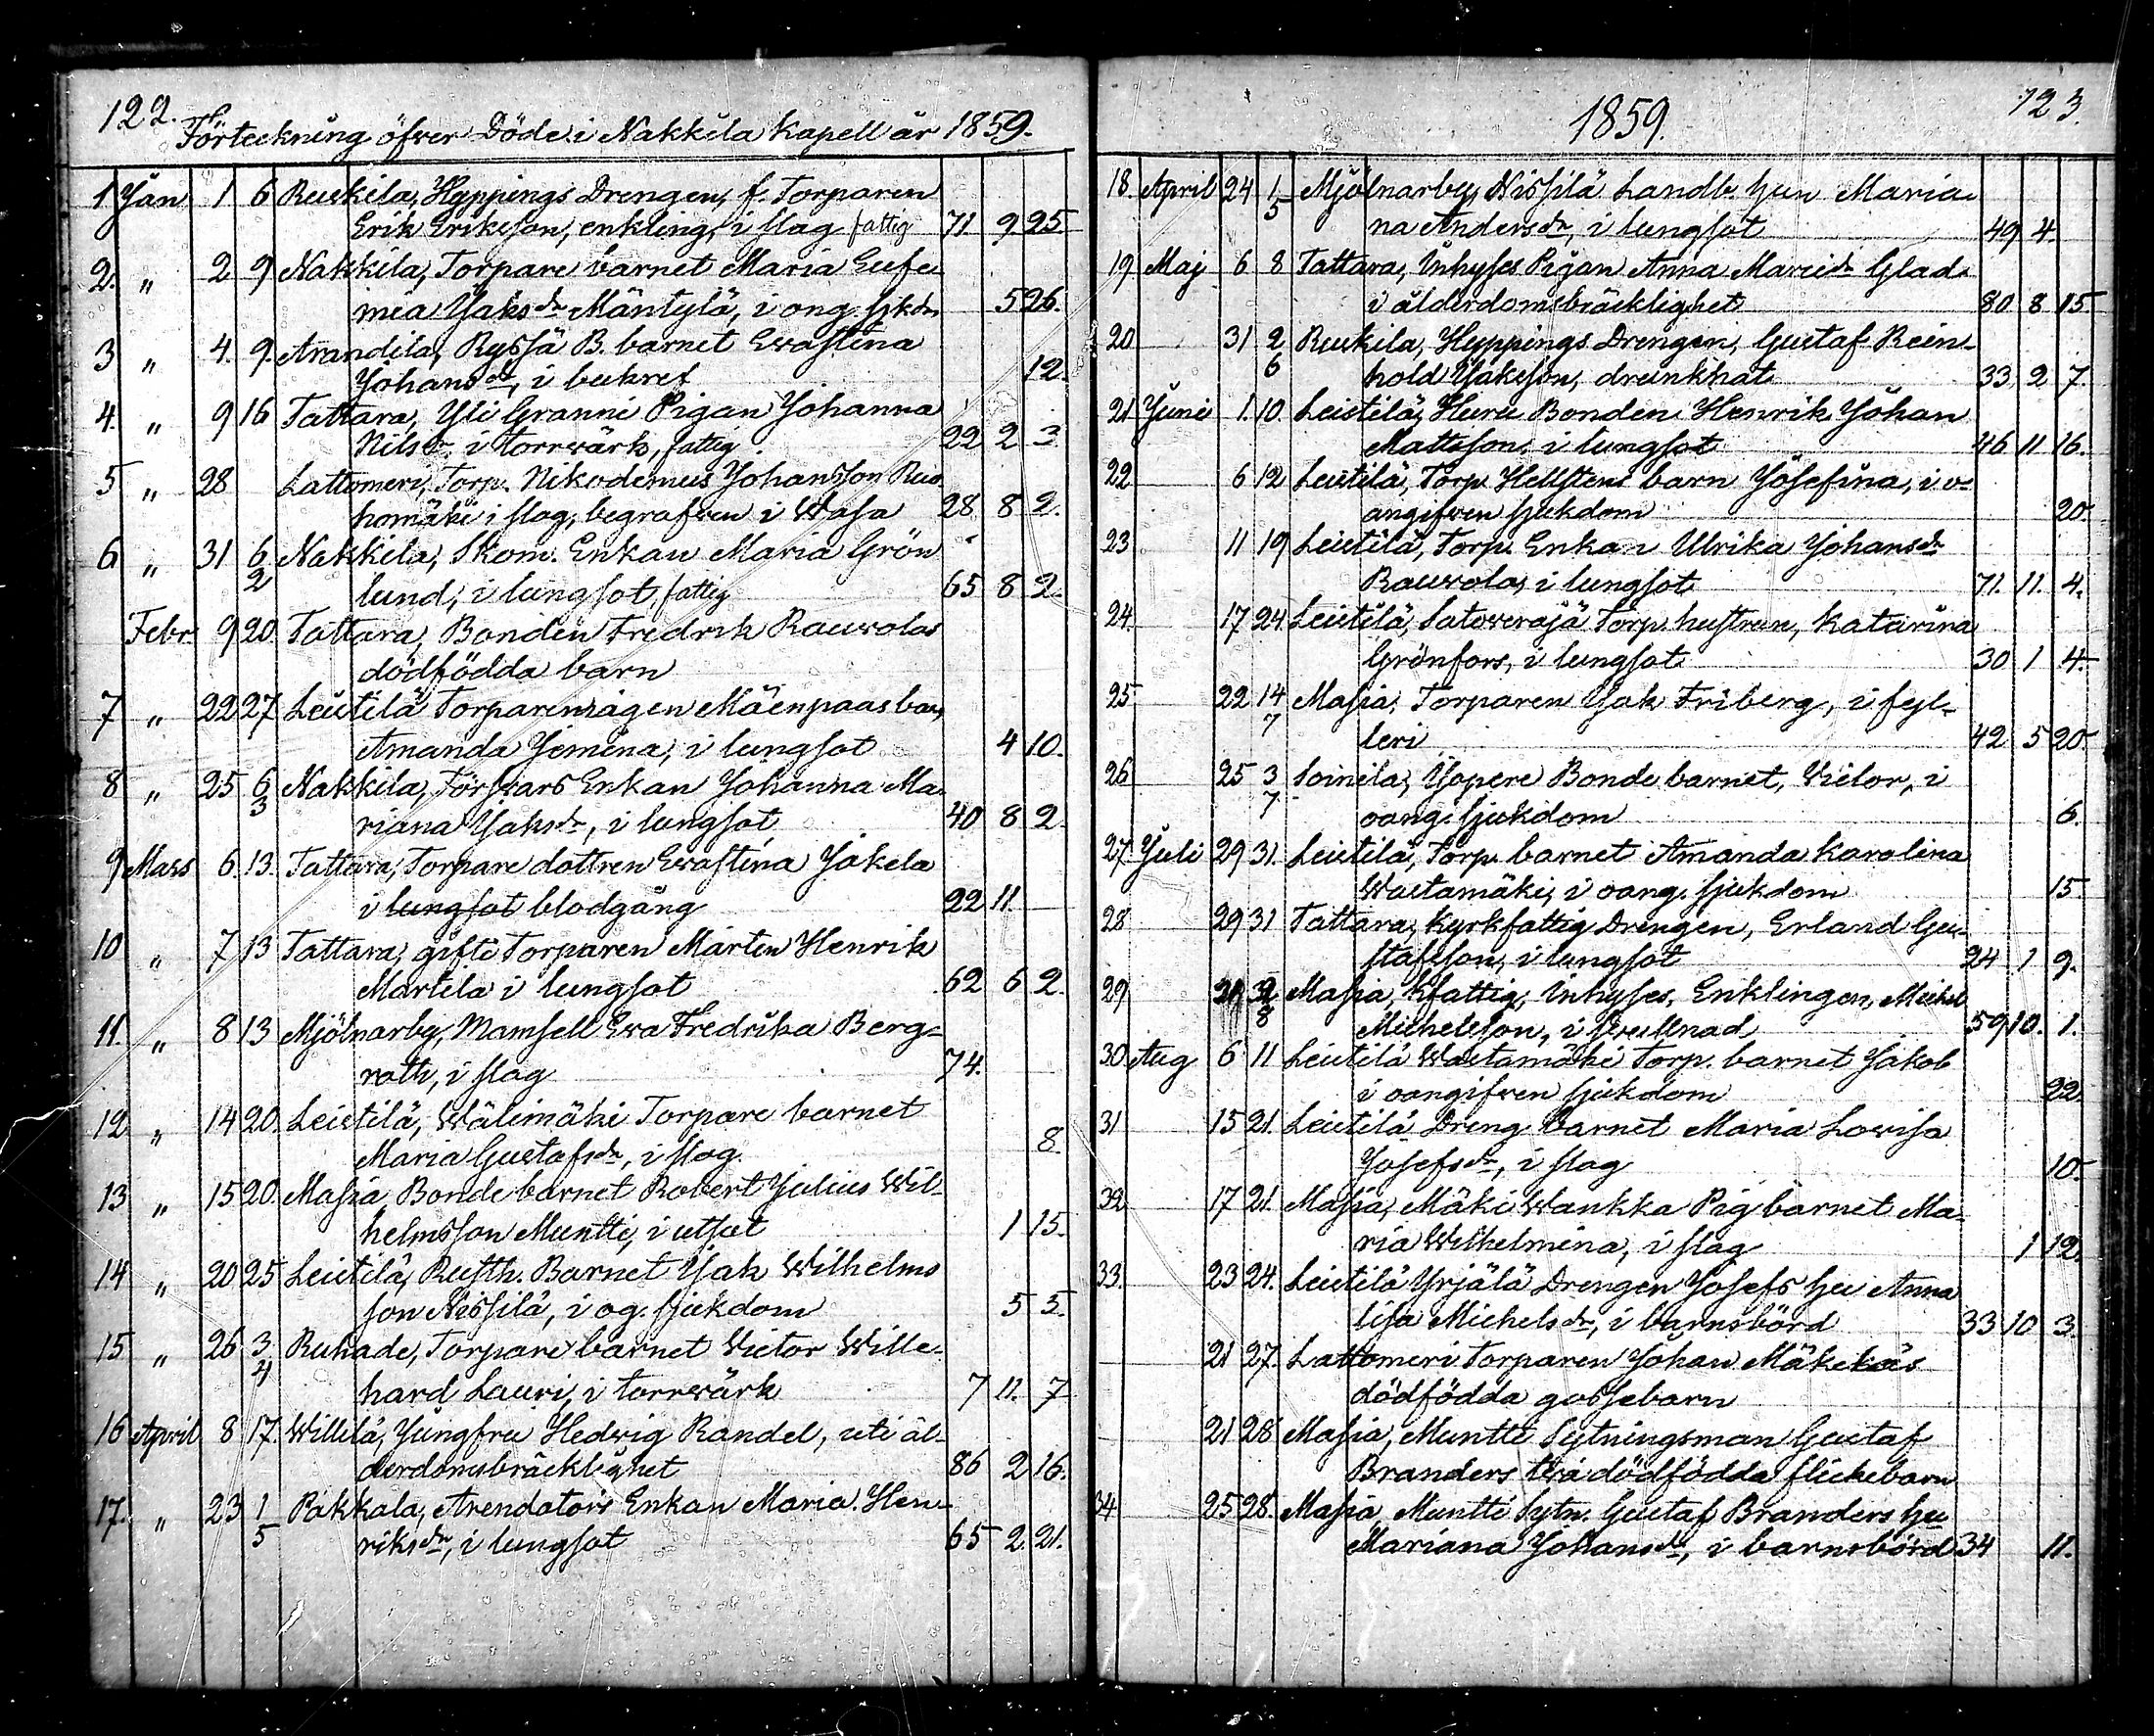 122.
Förteckning öfver Döde i Nakkila Kapell år 1859.
1 Jan 1 6 Ruskila, Hyppings Drengen, f. Torparen
Erik Eriksson, enkling, i slag fattig 71 9 25
2. " 2 9 Nakkila, Torpare barnet Maria Eufe-
mia Jaksdr Mäntylä, i ong. sjkdm 5 26.
3 " 4. 9. Arandila, Ryssä B. barnet Evastina
Johansdr, i bukref 12.
4. " 9 16 Tattara, Yli Granni Pigan Johanna
Nilsdr. i torrwärk, fattig. 22 2 3
5 " 28 Lattomeri, Torp. Nikodemus Johansson Rus
homäki i slag, begrafven i Wasa 28 8 2.
6 " 31 6/2 Nakkila, Skom. Enkan Maria Grön
lund, i lungsot, fattig 65 8 2.
Febr. 9 20. Tattara, Bonden Fredrik Rauvolas
dödfödda barn
7 " 22 27 Leistilä Torparen Mäenpääs barn
Amanda Jemina, i lungsot 4 10.
8 " 25 6/3 Nakkila, Enkan Johanna Ma-
riana Jaksdr, i lungsot 40 8 2
9 Mars 6. 13. Tattara, Torpare dottren Evastina Jakela
i lungsot blodgång 22 11.
10 " 7 13 Tattara, gifte Torparen Martin Henrik
Martila i lungsot 62 6 2.
11. " 8 13 Mjölnarby, Mamsell Eva Fredrika Berg-
roth, i slag 74.
12 " 14 20. Leistilä, Wälimäki Torpare barnet
Maria Gustafsdr, i slag. 8.
13 " 15 20. Masia Bonde barnet Robert Julius Wil-
helmsson Muntti, i utsot 1 15.
14 " 20 25 Leistilä, Rusth. Barnet Isak Wilhelms
son Nissilä, i og. sjukdom 5 5.
15 " 26 3/4 Ruhade, Torpare barnet Victor Wille-
hard Lauri, i torrwärk 7 11. 7
16 April 8 17. Willilä, Jungfru Hedvig Randel, uti ål-
derdomsbräcklighet 86 2 16.
17. " 23 1/5 Pakkala, Arendators Enkan Maria Hen-
riksdr, i lungsot 65 2. 21.
1859.
123.
18. April 24 1/5 Mjölnarby, Nissilä Landb. hun Maria
na Andersdr, i lungsot 49 4.
19 Maj 6 8 Tattara, Inhyses Pigan Anna Mariedr Glad-
i ålderdomsbräcklighet 80 8 15.
20 31 2/6 Ruskila, Hyppings Drengen, Gustaf Rein-
hold Isaksson, drunknat 33 2 7.
21 Juni 1. 10. Leistilä, Huru Bonden Henrik Johan
Mattsson, i lungsot 46 11 16.
22 6 12 Leistilä, Torp Hellstens barn Josefina, i o-
angifven sjukdom 20.
23 11 19 Leistilä, Torp. Enkan Ulrika Johansdr
Rauvola, i lungsot 71. 11. 4.
24. 17 24. Leistilä, Torp. hustrun, Katarina
Grönfors, i lungsot 30 1 4.
25 22 14/7 Masia, Torparen Isak Friberg, i fyl-
leri 42 5 20.
26 25 3/7 Soinila, Bonde barnet, Victor, i
oang. sjukdom 6.
27. Juli 29 31. Leistilä, Torp. barnet Amanda Karolina
Wastamäki, i oang. sjukdom 15.
28 29 31 Tattara, kyrkfattig Drengen, Erland Gu-
stafsson, i lungsot 24 1 9.
29 2/8 Masia, kfattig, Inhyses, Enklingen, Mickel
Michelsson, i svullnad 59 10. 1.
30. Aug 6 11 Leistilä Wastamäki Torp. barnet Jakob
i oangifven sjukdom 22.
31 15 21. Leistilä Dreng barnet Maria Lovisa
Josefsdr, i slag 10.
32 17 21. Masia, Mäki Wankka Pig barnet Ma-
ria Wilhelmina, i slag 1 12.
33. 23 24. Leistilä Yrjälä Drengen Josefs hu Anna
Lisa Michelsdr, i barnsbörd 33 10 3.
21 27. Lattomeri Torparen Johan
dödfödda gossebarn
21 28 Masia, Muntti Sytningsman Gustaf
Branders två dödfödda flickebarn
34 25 28. Masia, Muntti Sytn. Gustaf Branders hu
Mariana Johansdr, i barnsbörd 34 11.